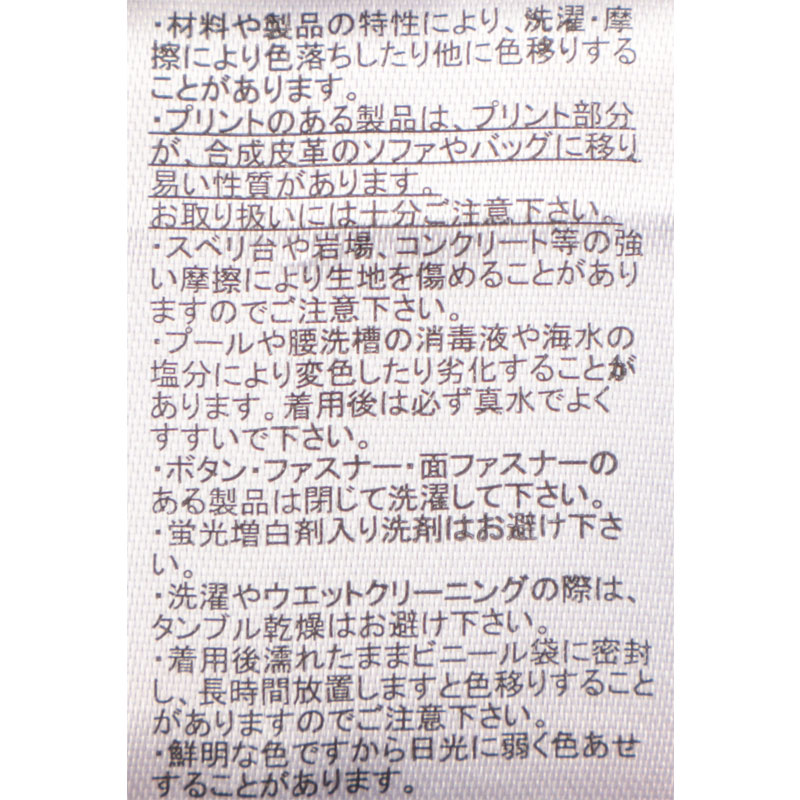 ・材料や製品の特性により、洗濯・摩
擦により色落ちしたり他に色移りする
ことがあります。
・プリントのある製品は、プリント部分
が、合成皮革のソファやバッグに移り
易い性質があります。
お取り扱いには十分ご注意下さい。
・スベリ台や岩場、コンクリート等の強
い摩擦により生地を傷めることがあり
ますのでご注意下さい。
・プールや腰洗槽の消毒液や海水の
塩分により変色したり劣化することが
あります。着用後は必ず真水でよく
すすいで下さい。
・ボタン・ファスナー・面ファスナーの
ある製品は閉じて洗濯して下さい。
・蛍光増白剤入り洗剤はお避け下さ
い。
・洗濯やウエットクリーニングの際は、
タンブル乾燥はお避け下さい。
・着用後濡れたままビニール袋に密封
し、長時間放置しますと色移りすること
がありますのでご注意下さい。
・鮮明な色ですから日光に弱く色あせ
することがあります。